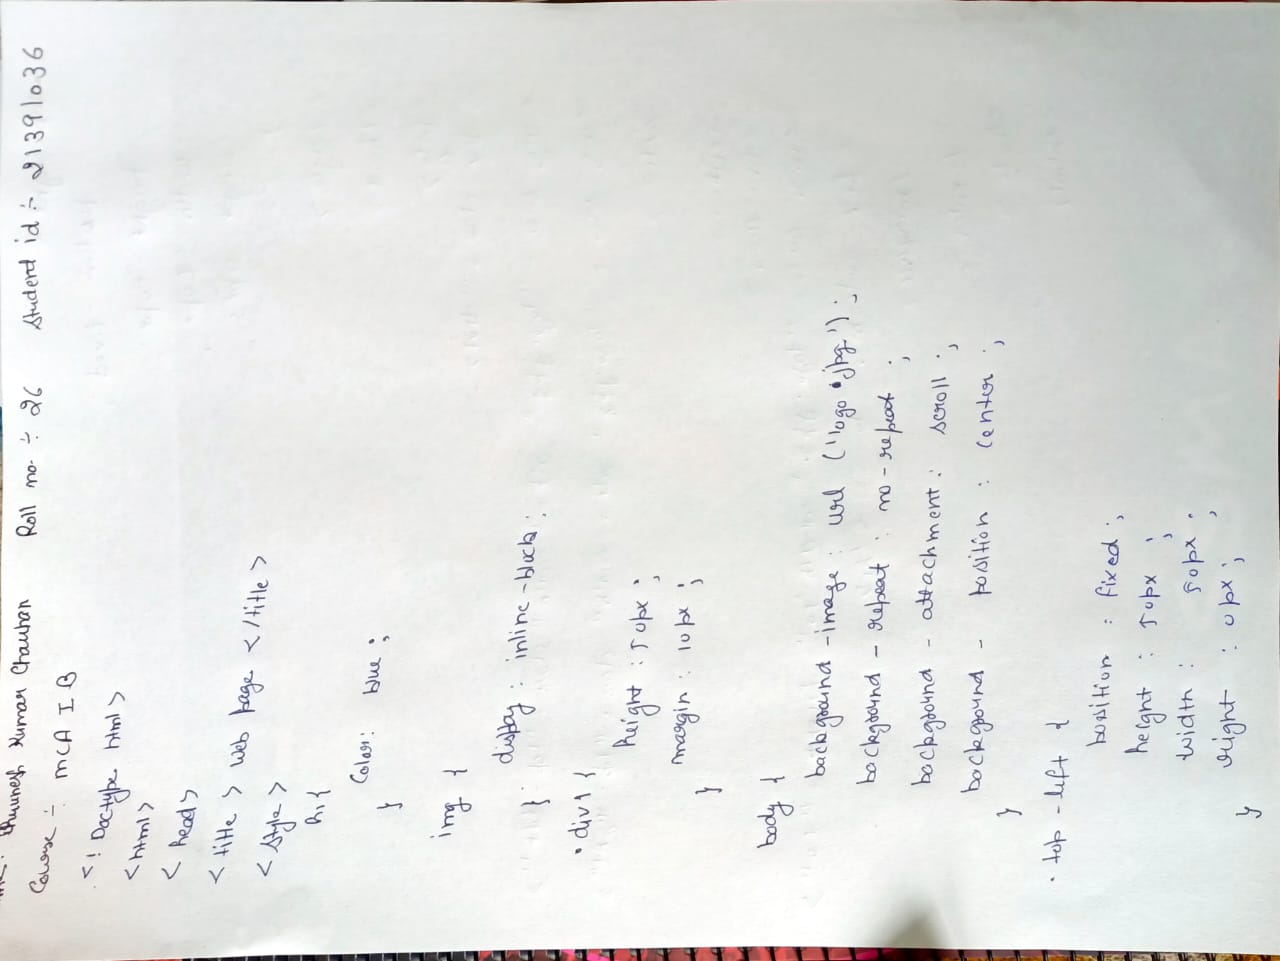 Kumar Chauhan Roll no ÷ 26 Student id ÷ 21391036
Course ÷ MCA I B
<! Doctype html>
<html>
<head>
<title> web page </title>
<style>
h1{
Color: blue;
}
img {
display: inline-block;
}
.div1 {
height: 50px;
margin: 10px;
}
body {
background-image: url ("logo.jpg');
background-repeat: no-repeat;
background-attachment: scroll;
background-position: center;
}
.top-left {
position: fixed;
height: 50px;
width: 50px;
right: 0px;
}